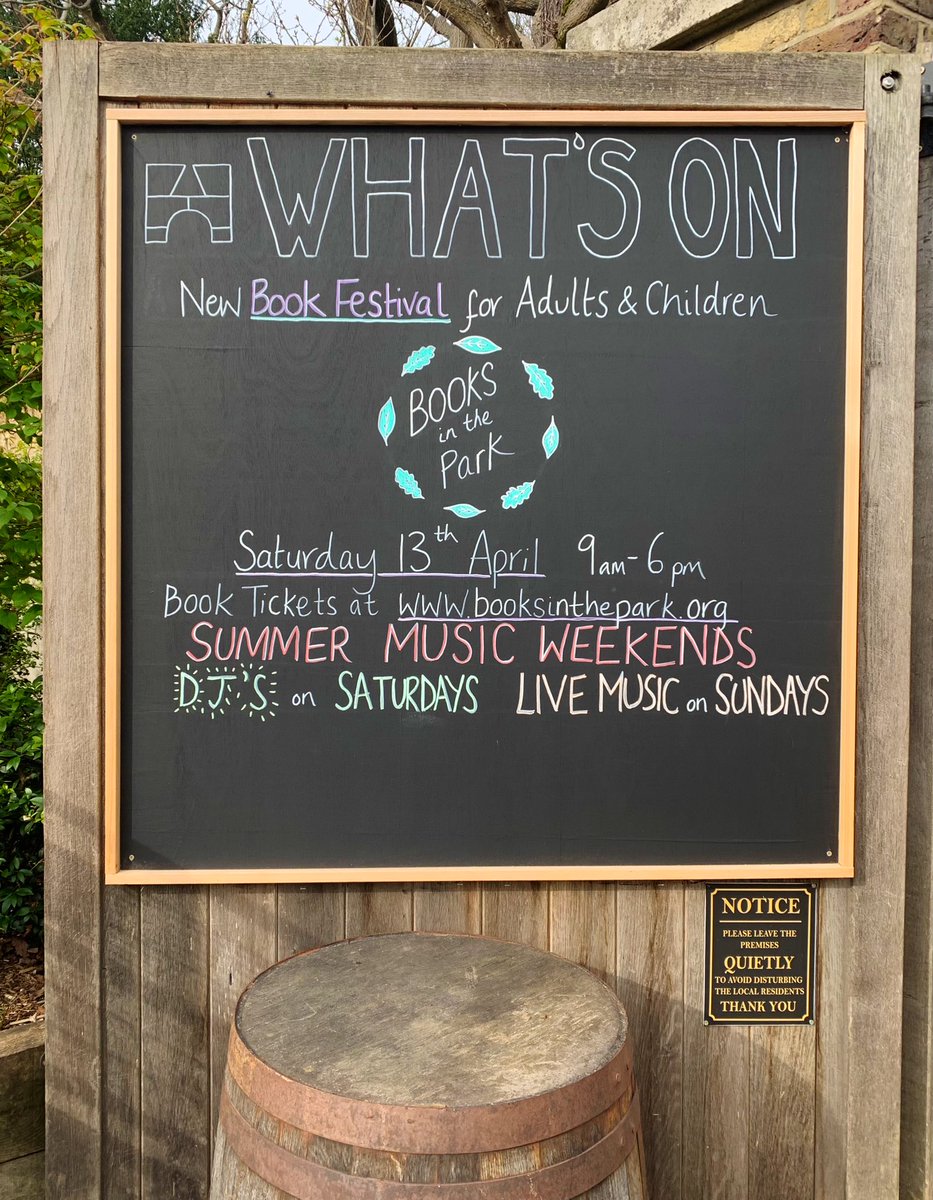 WHAT'S ON
New Book Festival for Adults & Children
BOOKS
in the
Park
Saturday 13th April 9am-6pm
Book Tickets at www.booksinthepark.org
SUMMER MUSIC WEEKENDS
DJ'S on SATURDAYS LIVE MUSIC on SUNDAYS
NOTICE
PLEASE LEAVE THE
PREMISES
QUIETLY
TO AVOID DISTURBING
THE LOCAL RESIDENTS
THANK YOU